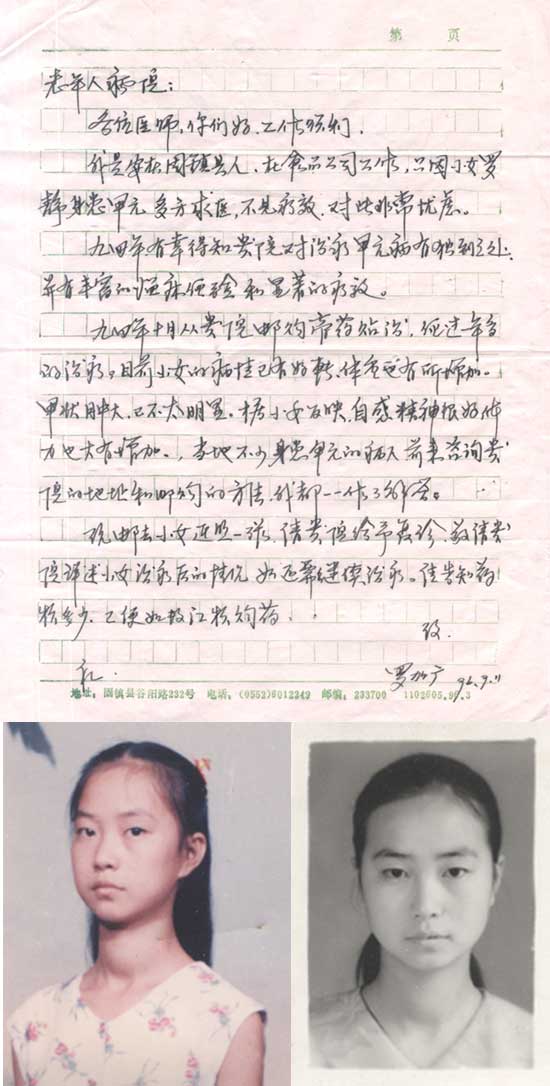 第 页
老年人病院:
各位医师,你们好,工作顺利.
我是安徽固镇县人,在食品公司工作,只因小女罗
静身患甲亢,多方求医,不见疗效,对此非常忧虑。
九四年有幸得知贵院对治疗甲亢病有独到之处,
并有丰富的临床经验和显著的疗效。
九四年十月从贵院邮购膏药贴治,经过一年多
的治疗。目前小女的病情已有好转,体重还有所增加。
甲状肿大,已不太明显。据小女反映,自感精神很好体
力也大有增加。当地不少身患甲亢的病人前来咨询贵
院的地址和邮购的方法,我都一一作了解答。
现邮去小女近照一张,请贵院给予复诊,敬请贵
院详述小女治疗后的情况,如还需继续治疗。请告知药
款多少,以便如数汇款购药
致.
礼.
罗加广 96.9.11
地址:固镇县谷阳路232号 电话:(0552)6012349 邮编:233700 1102605.95.3